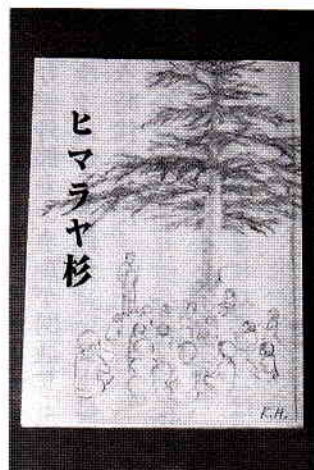 ヒマラヤ杉
K.H.